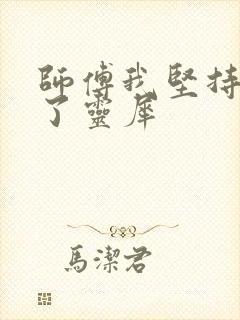 師傅我堅持
了靈犀
馬潔君